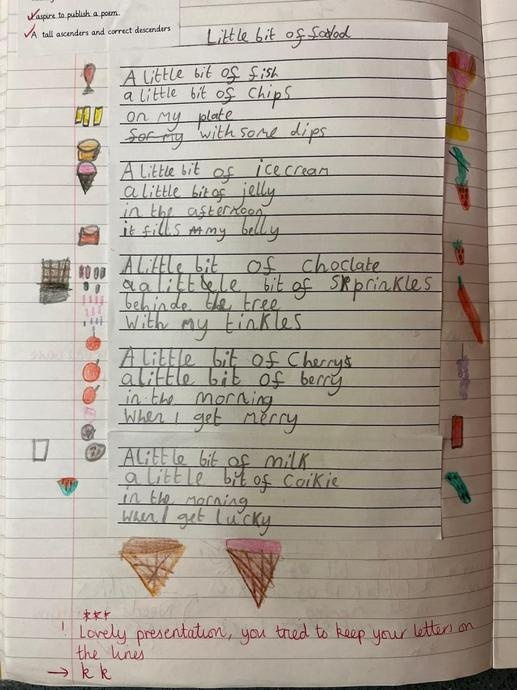 aspire to publish a poem.
A tall ascenders and correct descenders
Little bit of food
A little bit of fish
a little bit of chips
on my plate
for my with some dips
A little bit of ice cream
a little bit of jelly
in the afternoon
it fills my belly
A little bit of choclate
a a littele bit of Skprinkles
behinde the tree
With my tinkles
A little bit of Cherrys
a little bit of berry
in the morning
When I get Merry
A little bit of milk
a little bit of Coikie
in the morning
When I get lucky
Lovely presentation, you tried to keep your letters on
the lines
→ k k